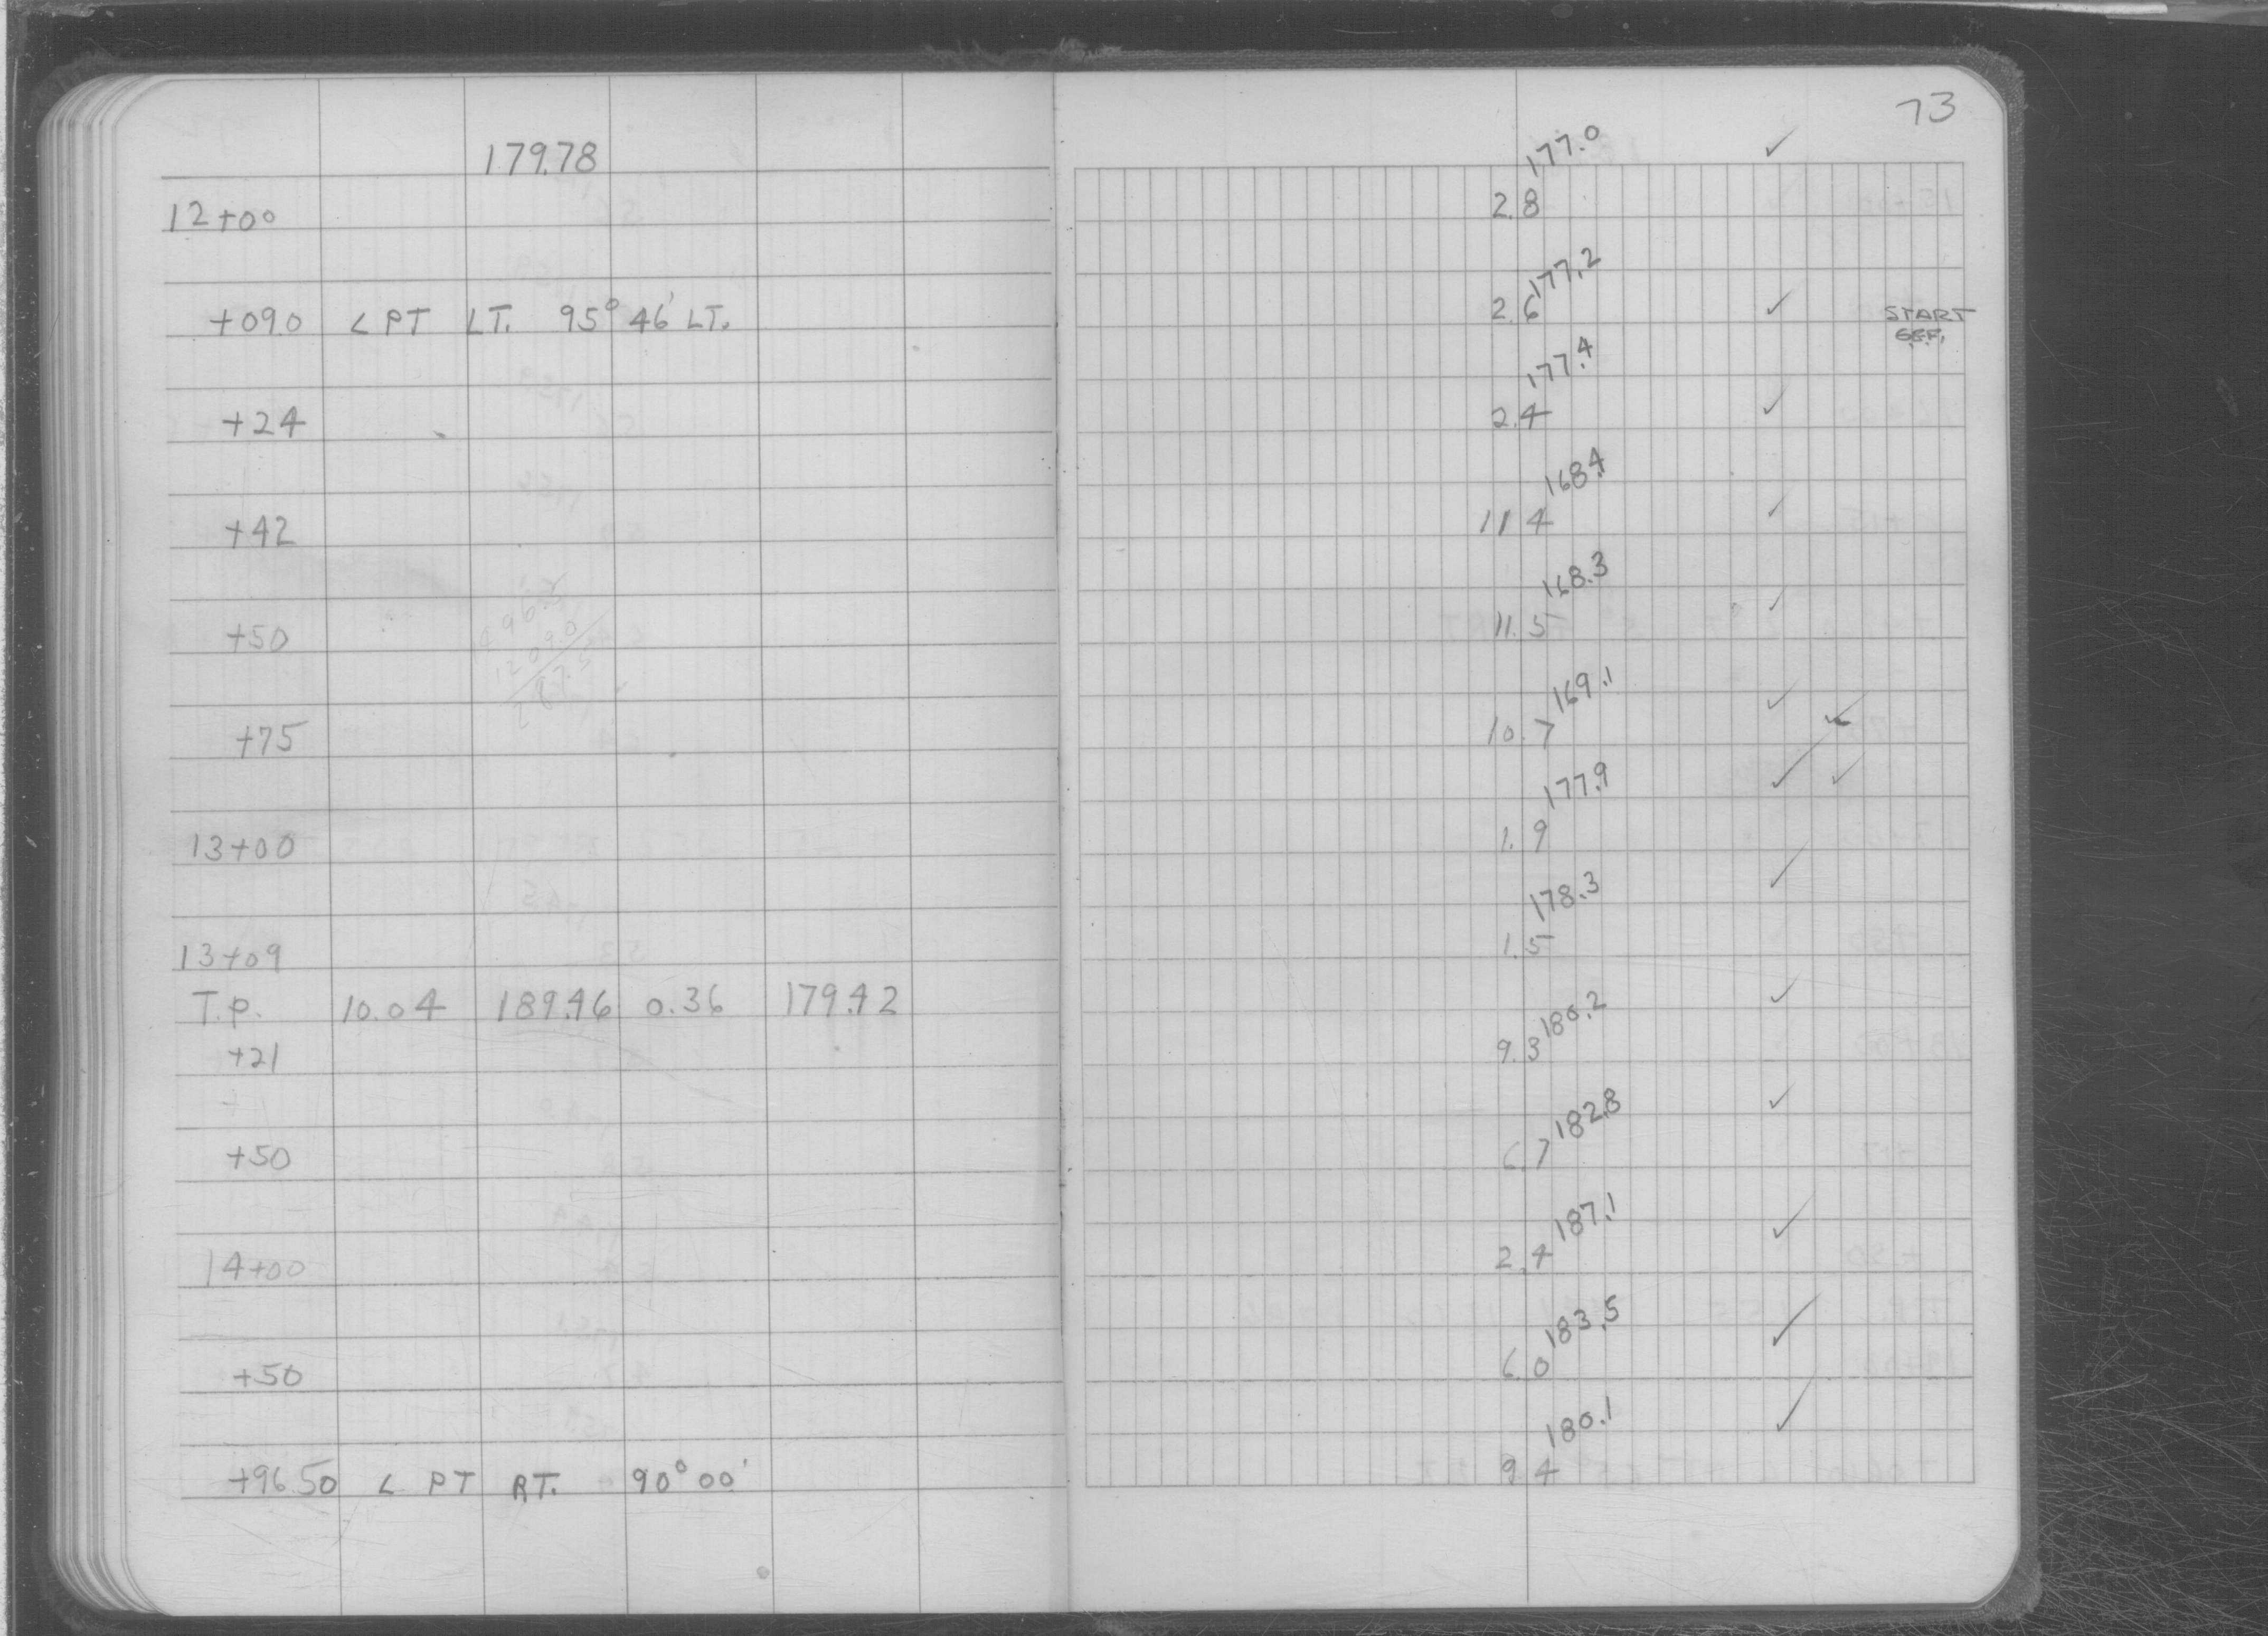 73
179.78
177.0
12+00 2.8
177.2
+09.0 < PT LT. 95° 46' LT. 2.6 START
177.4
+24 2.4
168.4
+42 11 4
168.3
+50 11.5
1209.0
287.5
169.1
+75 10.7
177.9
13+00 1.9
178.3
13+09 1.5
T.P. 10.04 189.46 0.36 179.42
180.2
+21 9.3
182.8
+50 6.7
187.1
14+00 2.4
183.5
+50 6.0
180.1
+96.50 < PT RT. 90° 00' 9 4